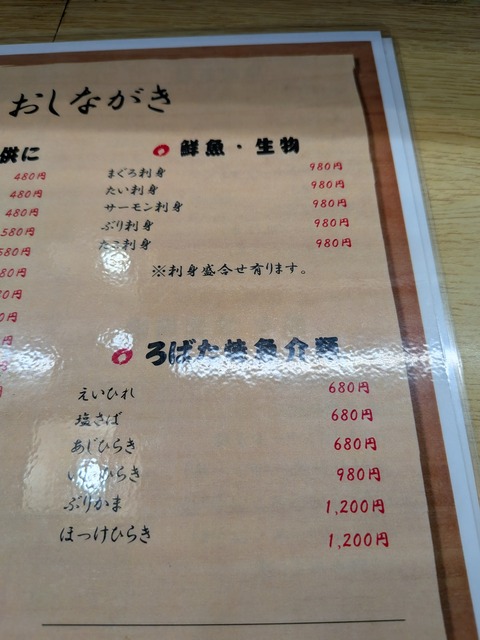 おしながき
供に
480円
480円
480円
580円
580円
80円
0円
0円
円
円
鮮魚・生物
まぐろ刺身 980円
たい刺身 980円
サーモン刺身 980円
ぶり刺身 980円
たこ刺身 980円
※刺身盛合せ有ります。
ろばた焼魚介類
えいひれ 680円
塩さば 680円
あじひらき 680円
ひらき 980円
ぶりかま 1,200円
ほっけひらき 1,200円